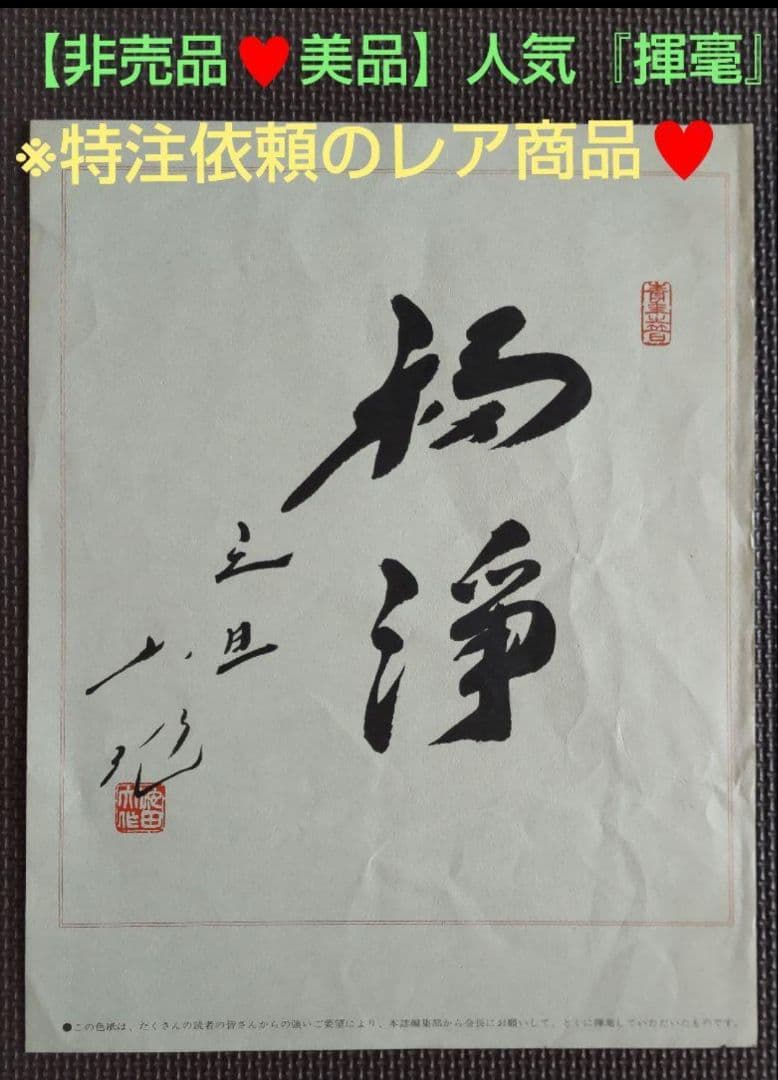 【非売品♥美品】人気『揮毫』
※特注依頼のレア商品♥
福
浄
元旦
大作
池田
大作
●この色紙は、たくさんの読者の皆さんからの強いご要望により、本誌編集部から会長にお願いして、とくに揮毫していただいたものです。